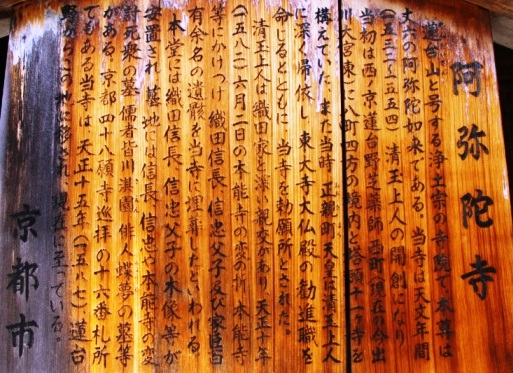 阿弥陀寺
蓮台山と号する浄土宗の寺院で、本尊は
丈六の阿弥陀如来である。当寺は天文年間
(一五三二~一五五四)清玉上人の開創になり
当初は西ノ京蓮台野芝薬師西町(現在の今出
川大宮東)に八町四方の境内と塔頭十一ヶ寺を
構えていた。また当時、正親町天皇は清玉上人
に深く帰依し、東大寺大仏殿の勧進職を
命じるとともに、当寺を勅願所とされた。
清玉上人は織田家と深い親交があり、天正十年
(一五八二)六月二日の本能寺の変の折、本能寺
等にかけつけ、織田信長、信忠父子及び家臣百
有余名の遺骸を当寺に埋葬したといわれる。
本堂には織田信長、信忠父子の木像等が
安置され、墓地には信長、信忠や本能寺の変
討死衆の墓、儒者皆川淇園、俳人蝶夢の墓等
がある。京都四十八願寺巡拝の十六番札所
でもある当寺は、天正十五年(一五八七)、蓮台
野からこの地に移され、現在に至っている。
京都市